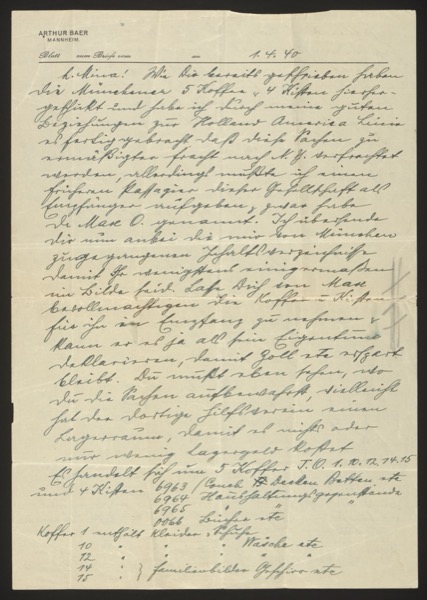 ARTHUR BAER
MANNHEIM
Blatt zum Brief vom an 1.4.40
L. Mina! Wie Dir bereits geschrieben haben
die Münchener 5 Koffer u. 4 Kisten hierher-
geschickt und habe ich durch meine guten
Beziehungen zur Holland Amerika Linie
es fertig gebracht daß diese Sachen zu
ermäßigter Fracht nach N.Y. verfrachtet
werden, allerdings mußte ich einen
früheren Passagier dieser Gesellschaft als
Empfänger aufgeben, u. zwar habe
Dr. Max O. genannt. Ich übersende
Dir nun anbei die mir von München
zugegangenen Inhaltsverzeichnisse
damit Ihr wenigstens einigermaßen
im Bilde seid. Laß Dich von Max
bevollmächtigen die Koffer u. Kisten
für ihn in Empfang zu nehmen,
kann er es ja als sein Eigentum
deklarieren, damit Zoll etc erspart
bleibt. Du mußt eben sehen, wo
Du die Sachen aufbewahrst, vielleicht
hat der dortige Hilfsverein einen
Lagerraum, damit es nichts oder
nur wenig Lagergeld kostet
Es handelt sich um 5 Koffer J.O. 1. 10. 12. 14. 15
und 4 Kisten 6963 Decken Betten etc
6964 Haushaltungsgegenstände
6965 "
0066 Bücher etc
Koffer 1 enthält Kleider, Schuhe
10 " " Wäsche etc
12 " " "
14 " } Familienbilder Geschirr etc
15 "